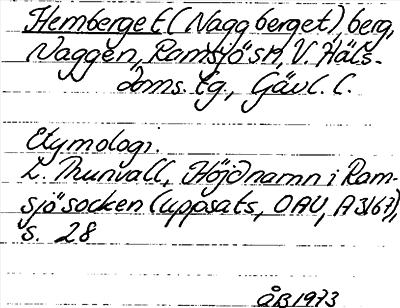 Hemberget (Naggberget), berg,
Naggen, Ramsjö sn, V. Häls-
doms. tg, Gävl. l.
Etymologi.
L. Thunvall, Höjdnamn i Ram-
sjö socken (uppsats, OAU, A3167),
s. 28
ÅB 1973